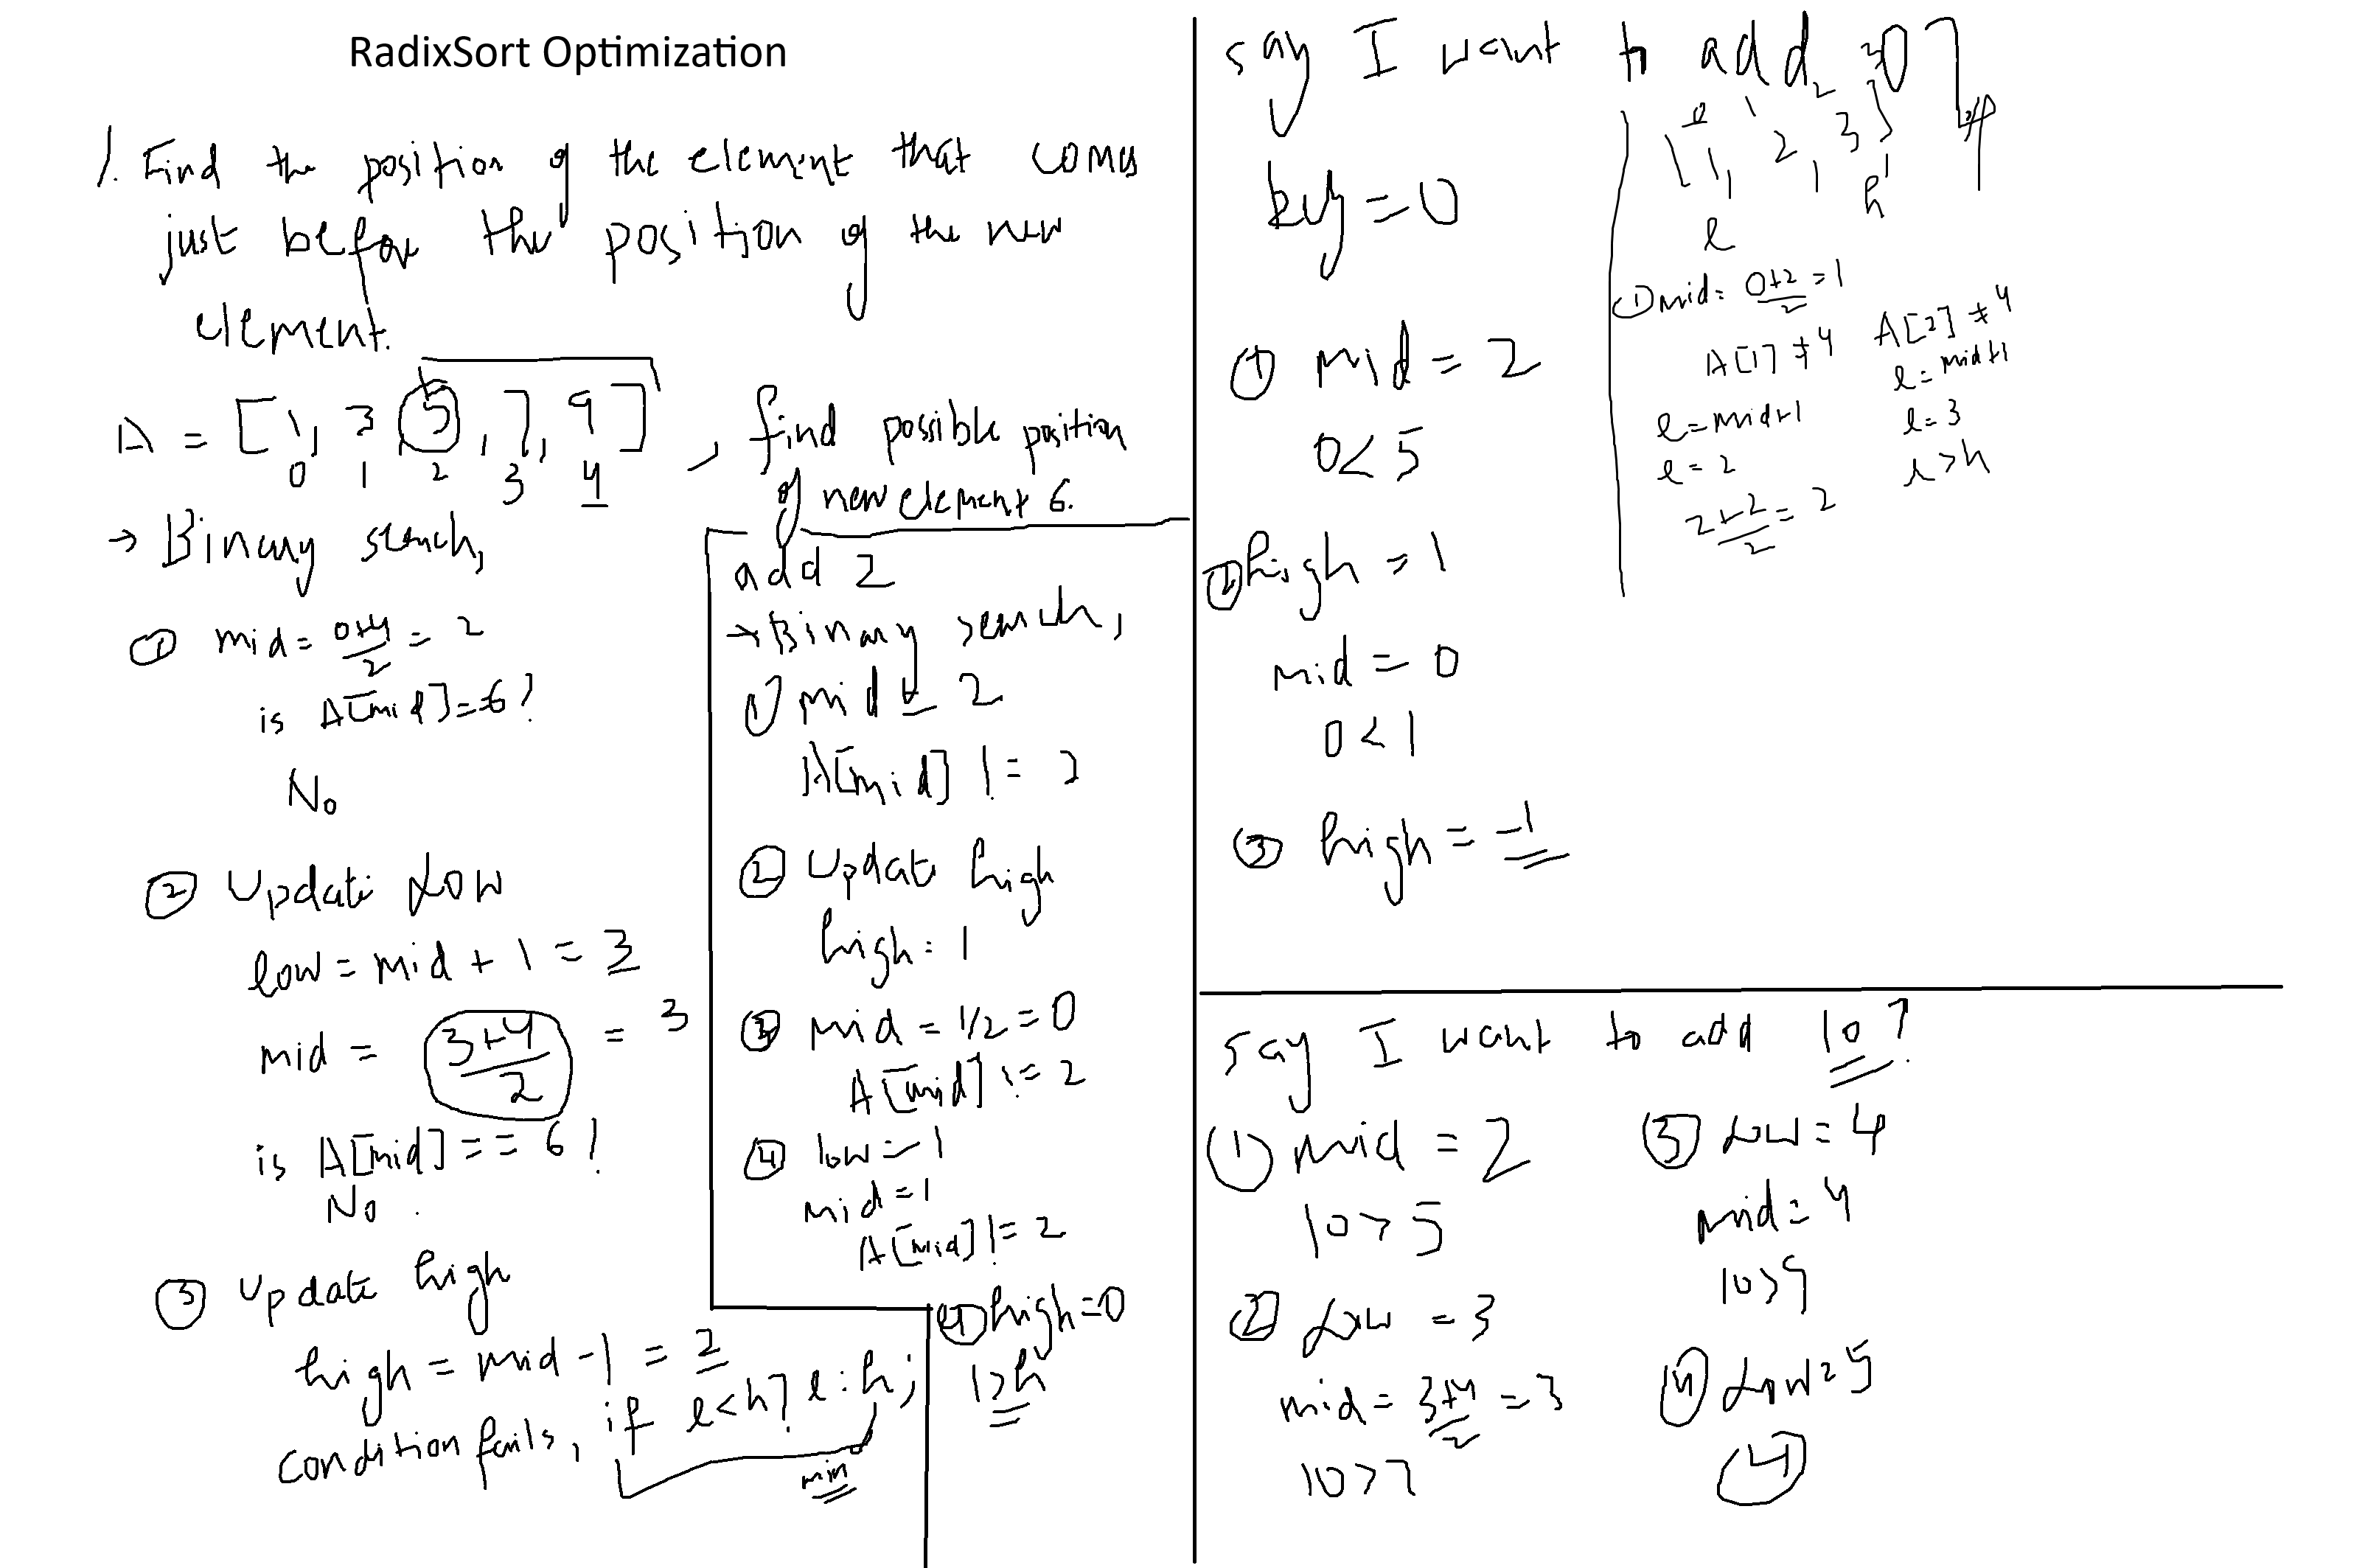 RadixSort Optimization
1. Find the position of the element that comes
just before the position of the new
element.
A = [1, 3, 5, 7, 9] , find possible position
0 1 2 3 4
of new element 6.
→ Binary search,
① mid = 0+4/2 = 2
is A[mid]==6?
No
② Update Low
low = mid + 1 = 3
mid = 3+4/2 = 3
is A[mid] == 6?
No.
③ Update high
high = mid - 1 = 2
condition fails, if l<h? l:h;
min
add 2
→ Binary search,
① mid = 2
A[mid] != 2
② Update high
high = 1
③ mid = 1/2 = 0
A[mid] != 2
④ low = 1
mid = 1
A[mid] != 2
④ high = 0
l>h
say I want to add 0?
key = 0
① mid = 2
0<5
② high = 1
mid = 0
0<1
③ high = -1
0 1 2
[1, 2, 3]
l h
① mid = 0+2/2 = 1
A[1] ≠ 4
l = mid+1
l = 2
2+2/2 = 2
A[2] ≠ 4
l = mid+1
l = 3
l > h
say I want to add 10?
① mid = 2
10 > 5
② Low = 3
mid = 3+4/2 = 3
10 > 7
③ Low = 4
mid = 4
10 > 9
④ Low = 5
4